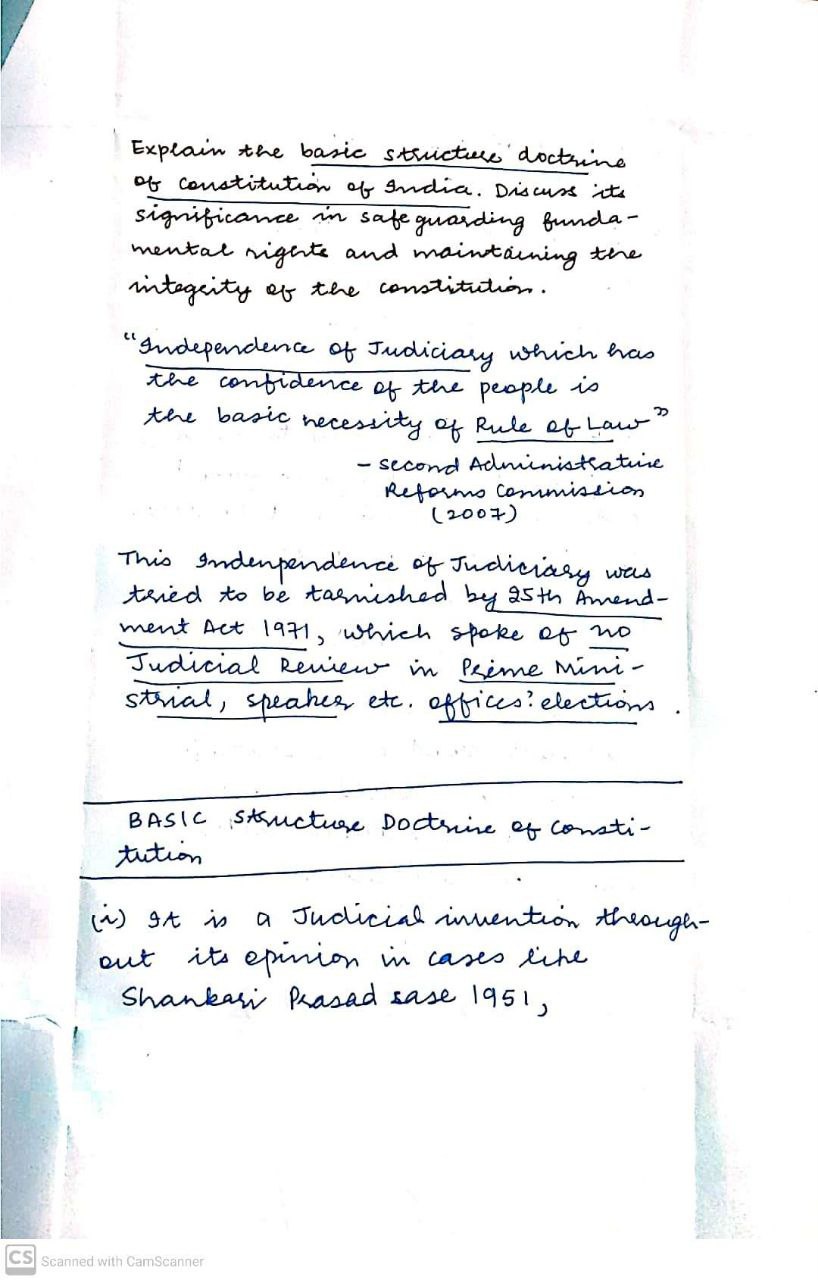 Explain the basic structure doctrine
of constitution of India. Discuss its
significance in safeguarding funda-
mental rights and maintaining the
integrity of the constitution.
"Independence of Judiciary which has
the confidence of the people is
the basic necessity of Rule of Law"
- Second Administrative
Reforms Commission
(2007)
This Indenpendence of Judiciary was
tried to be tarnished by 25th Amend-
ment Act 1971, which spoke of no
Judicial Review in Prime Mini-
strial, speaker etc. offices' elections.
BASIC Structure Doctrine of Consti-
tution
(i) It is a Judicial invention through-
out its opinion in cases like
Shankari Prasad sase 1951,
CS Scanned with CamScanner